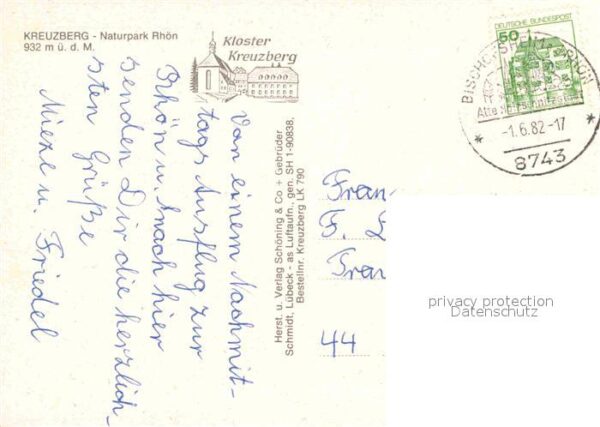 KREUZBERG - Naturpark Rhön
932 m ü. d. M.
Kloster
Kreuzberg
DEUTSCHE BUNDESPOST
50
BISCHOFSHEIM
RHÖN
-1.6.82-17
8743
Von einem Nachmit-
tags Ausflug zur
Rhön u. nach hier
senden Dir die herzlich-
sten Grüße
Mieze u. Friedel
Herst. u. Verlag Schöning & Co + Gebrüder
Schmidt, Lübeck - as Luftaufn., gen. SH 1-90838,
Bestellnr. Kreuzberg LK 790
Fran
F. L
Fran
44
privacy protection
Datenschutz